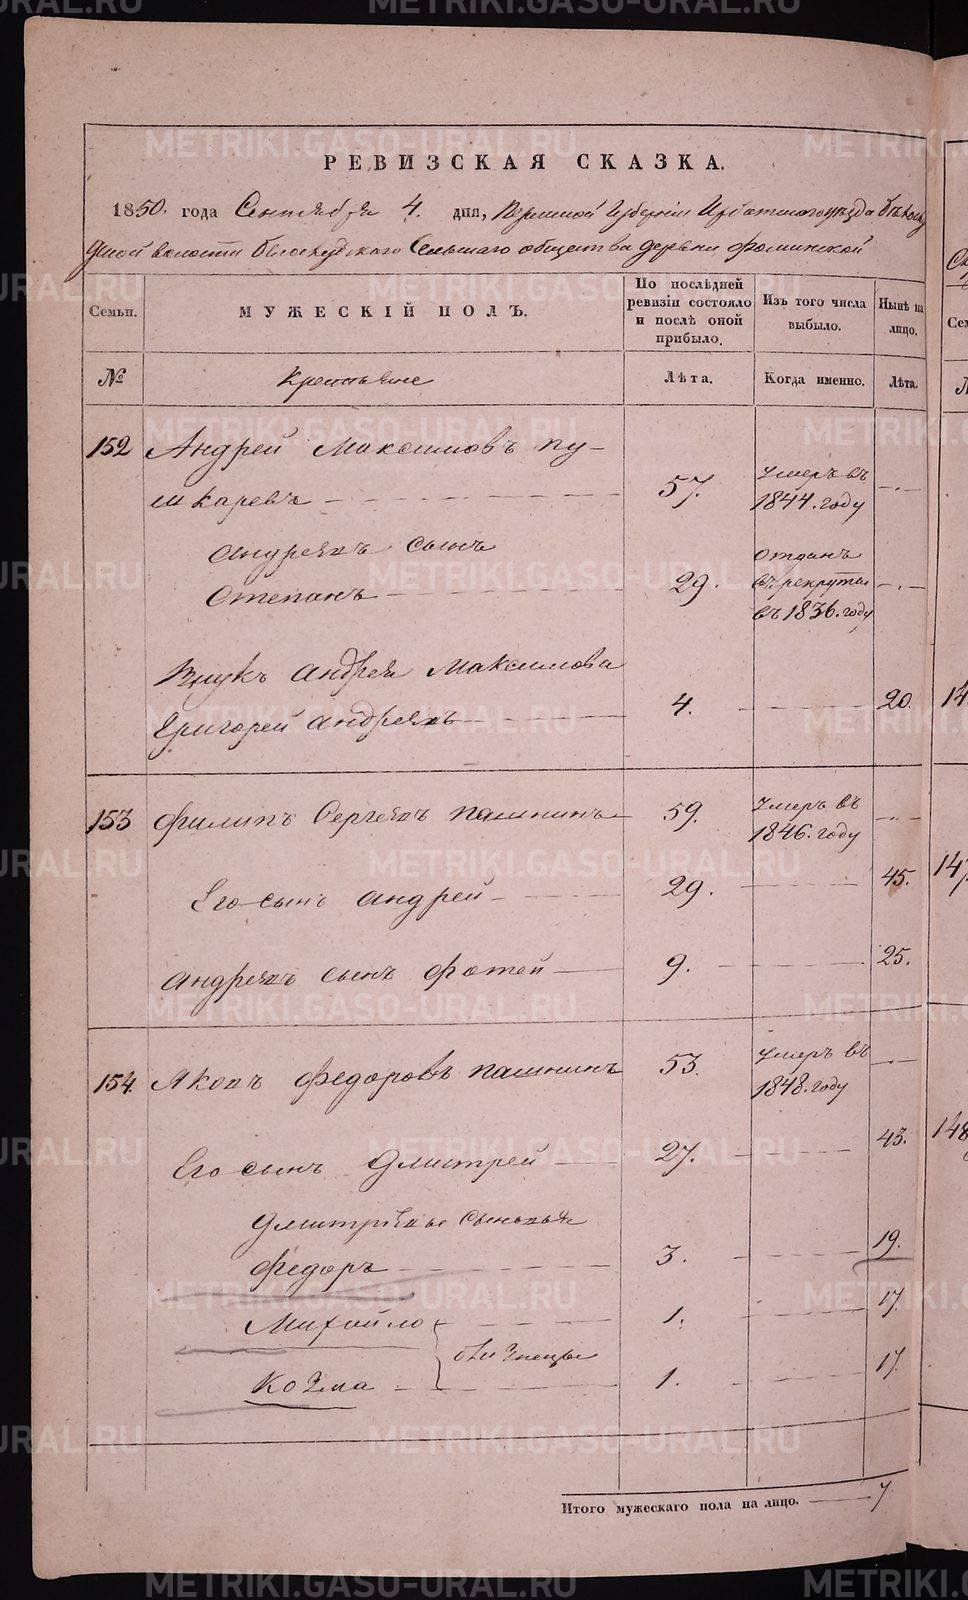 РЕВИЗСКАЯ СКАЗКА.
1850. года Сентября 4. дня, Пермской Губерніи Ирбитскаго уѣзда Бѣлослу
дской волости Бѣлослудскаго Сельскаго общества деревни Фоминской
Семьи.
МУЖЕСКІЙ ПОЛЪ.
По послѣдней ревизіи состояло и послѣ оной прибыло.
Изъ того числа выбыло.
Нынѣ на лицо.
№
Крестьяне
Лѣта.
Когда именно.
Лѣта.
152 Андрей Максимовъ Пу-
шкаревъ 57. Умеръ въ 1844. году
Андреевъ сынъ
Степанъ 29. Отданъ въ рекруты въ 1836. году
Внукъ Андрея Максимова
Григорей Андреевъ 4. 20.
153 Филипъ Сергеевъ Пашнинъ 59. Умеръ въ 1846. году
Его сынъ Андрей 29. 45.
Андреевъ сынъ Фотей 9. 25.
154. Яковъ Федоровъ Пашнинъ 53. Умеръ въ 1848. году
Его сынъ Дмитрей 27. 43.
Дмитріевы сыновья
Федоръ 3. 19.
Михайло 1. 17.
близнецы
Козма 1. 17.
Итого мужескаго пола на лицо. 7
METRIKI.GASO-URAL.RU